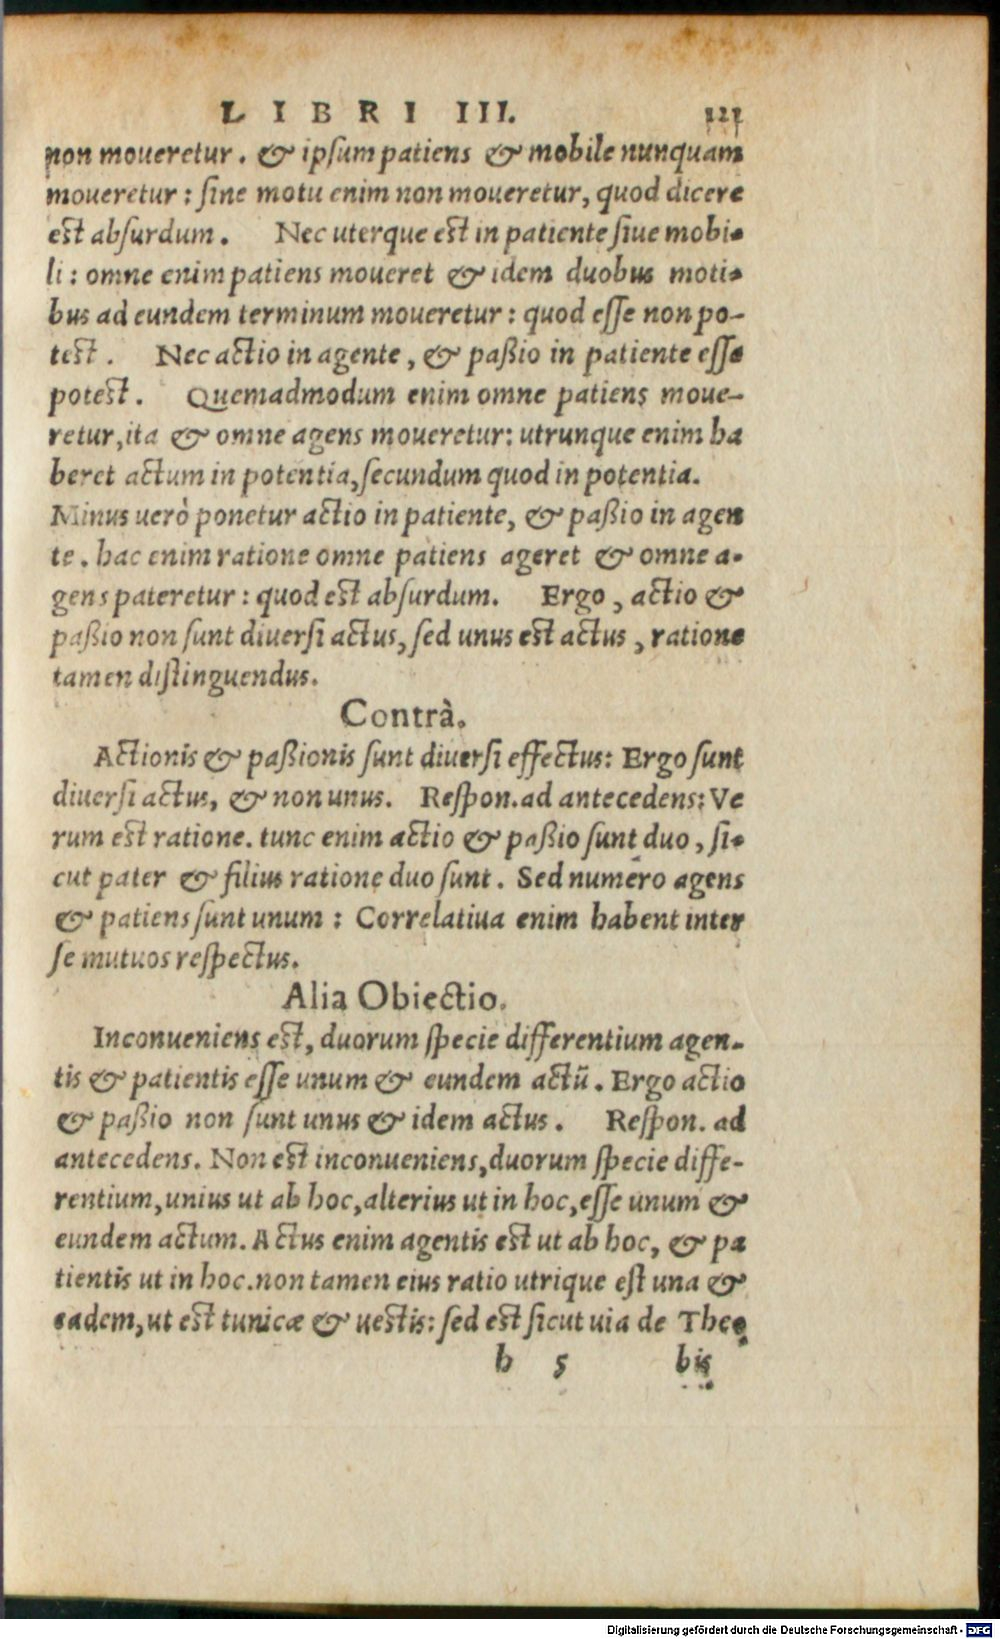 LIBRI III. 121
non moueretur. & ipsum patiens & mobile nunquam
moueretur: sine motu enim non moueretur, quod dicere
est absurdum. Nec uterque est in patiente siue mobi-
li: omne enim patiens moueret & idem duobus moti-
bus ad eundem terminum moueretur: quod esse non po-
test. Nec actio in agente, & paßio in patiente esse
potest. Quemadmodum enim omne patiens moue-
retur, ita & omne agens moueretur: utrunque enim ha
beret actum in potentia, secundum quod in potentia.
Minus uerò ponetur actio in patiente, & paßio in agen
te. hac enim ratione omne patiens ageret & omne a-
gens pateretur: quod est absurdum. Ergo, actio &
paßio non sunt diuersi actus, sed unus est actus, ratione
tamen distinguendus.
Contrà.
Actionis & paßionis sunt diuersi effectus: Ergo sunt
diuersi actus, & non unus. Respon. ad antecedens: Ve
rum est ratione. tunc enim actio & paßio sunt duo, si-
cut pater & filius ratione duo sunt. Sed numero agens
& patiens sunt unum: Correlatiua enim habent inter
se mutuos respectus.
Alia Obiectio.
Inconueniens est, duorum specie differentium agen-
tis & patientis esse unum & eundem actū. Ergo actio
& paßio non sunt unus & idem actus. Respon. ad
antecedens. Non est inconueniens, duorum specie diffe-
rentium, unius ut ab hoc, alterius ut in hoc, esse unum &
eundem actum. Actus enim agentis est ut ab hoc, & pa
tientis ut in hoc. non tamen eius ratio utrique est una &
eadem, ut est tunicæ & uestis: sed est sicut uia de The
h 5 bis
Digitalisierung gefördert durch die Deutsche Forschungsgemeinschaft - DFG